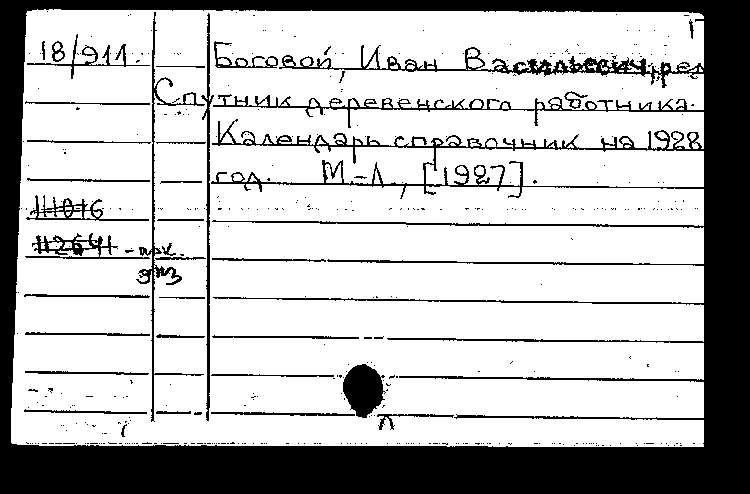 18/911. Боговой, Иван Васильевич, ред
Спутник деревенского работника.
Календарь справочник на 1928
год. М.-Л., [1927].
11016
11264 -
экз
Л